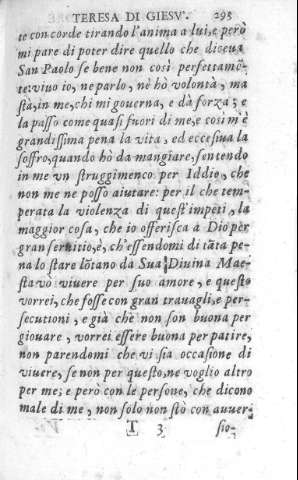 TERESA DI GIESV'. 295
te con corde tirando l'anima a lui, e però
mi pare di poter dire quello che diceua
San Paolo se bene non così perfettamē-
te: viuo io, ne parlo, nè hò volontà, ma
stà, in me, chi mi gouerna, e dà forza; e
la passo come quasi fuori di me, e così m'è
grandissima pena la vita, ed eccesiua la
soffro, quando hò da mangiare, sentendo
in me vn struggimenco per Iddio, che
non me ne posso aiutare: per il che tem-
perata la violenza di quest'impeti, la
maggior cosa, che io offerisca a Dio per
gran seruitio, è, ch'essendomi di tāta pe-
na lo stare lōtano da Sua Diuina Mae-
stà vò viuere per suo amore, e questo
vorrei, che fosse con gran trauagli, e per-
secutioni, e già che non son buona per
giouare, vorrei essere buona per patire,
non parendomi che vi sia occasione di
viuere, se non per questo, ne voglio altro
per me; e però con le persone, che dicono
male di me, non solo non stò con auuer-
T 3 sio-